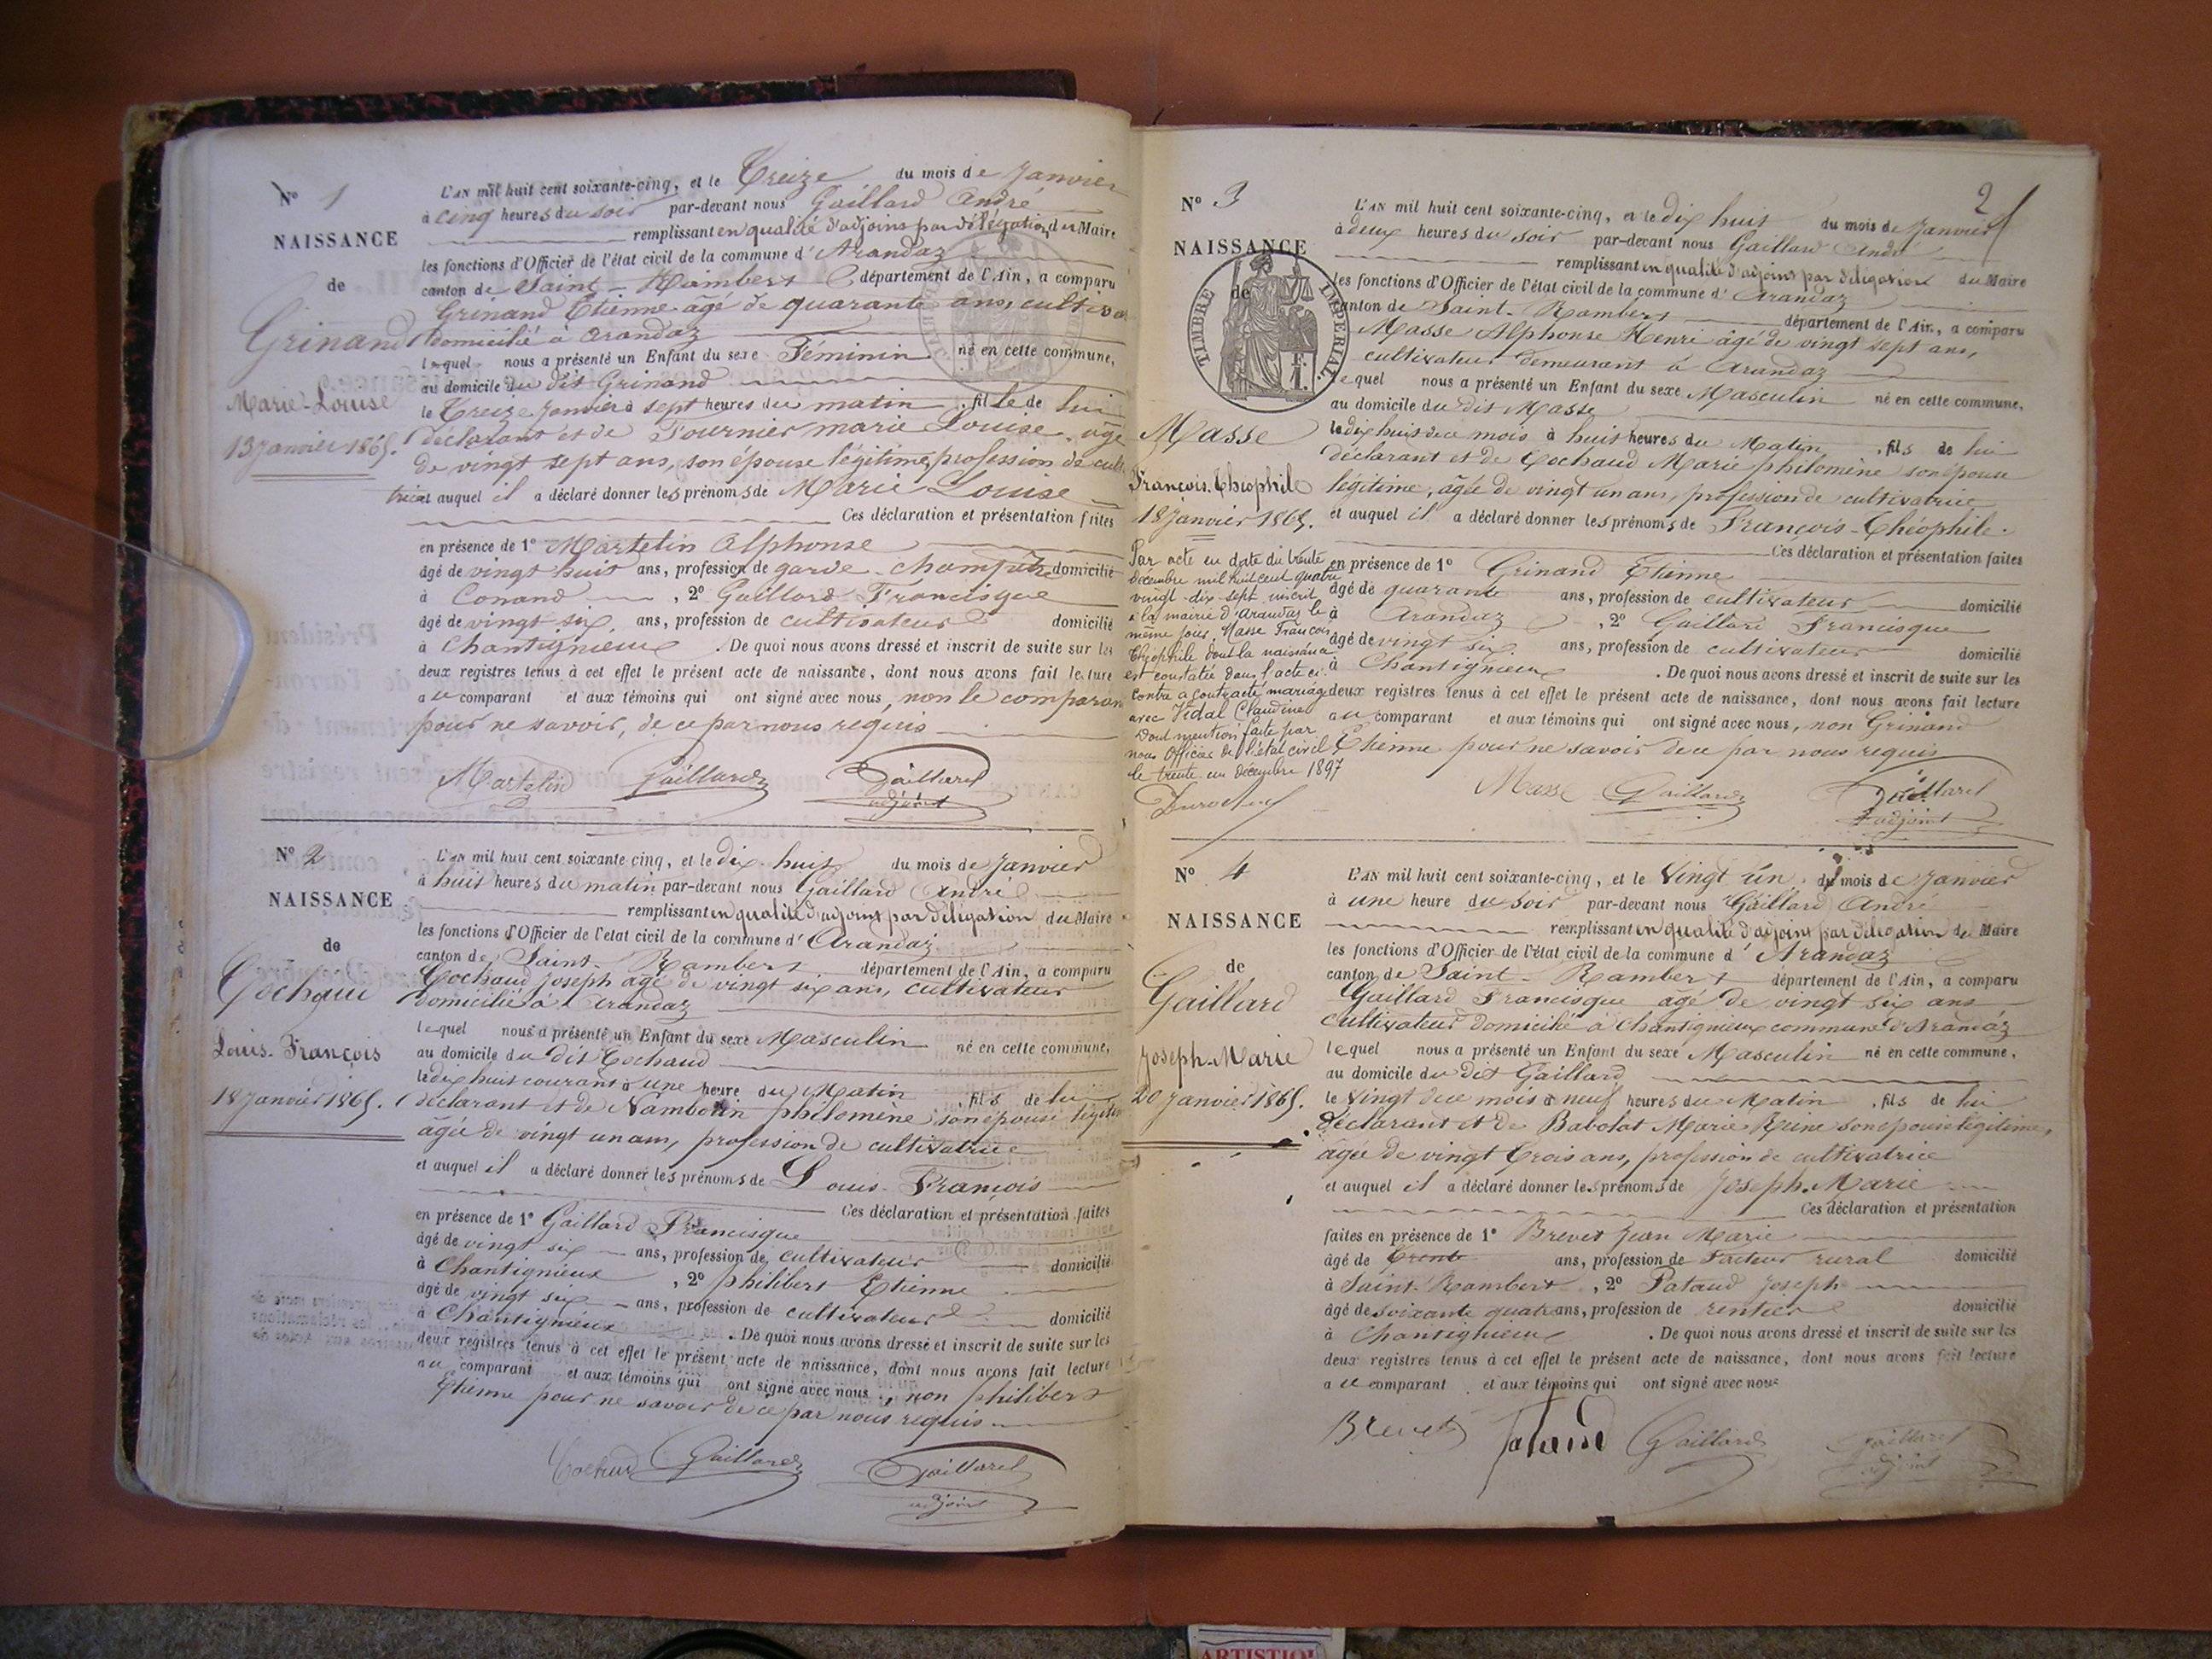 N° 1
NAISSANCE
de
Grinand
Marie-Louise
13 Janvier 1865.
L'AN mil huit cent soixante-cinq, et le Treize du mois de Janvier
à cinq heures du soir par-devant nous Gaillard André
remplissant en qualité d'adjoint par délégation du Maire
les fonctions d'Officier de l'état civil de la commune d'Arandaz
canton de Saint-Rambert département de l'Ain, a comparu
Grinand Etienne âgé de quarante ans, cultiva
domicilié à Arandaz
lequel nous a présenté un Enfant du sexe Féminin né en cette commune,
au domicile du dit Grinand
le Treize Janvier à sept heures du matin, fille de lui
déclarant et de Fournier marie Louise, âgé
de vingt sept ans, son épouse légitime, profession de cult
trice et auquel il a déclaré donner les prénoms de Marie Louise
Ces déclaration et présentation faites
en présence de 1° Martelin Alphonse
âgé de vingt huit ans, profession de garde-champêtre domicilié
à Conand, 2° Gaillard Francisque
âgé de vingt six ans, profession de cultivateur domicilié
à Chantignieux. De quoi nous avons dressé et inscrit de suite sur les
deux registres tenus à cet effet le présent acte de naissance, dont nous avons fait lecture
au comparant et aux témoins qui ont signé avec nous, non le comparan
pour ne savoir, de ce par nous requis
Martelin Gaillard Gaillard
adjoint
N° 2
NAISSANCE
de
Cochaud
Louis-François
18 Janvier 1865.
L'AN mil huit cent soixante cinq, et le dix-huit du mois de Janvier
à huit heures du matin par-devant nous Gaillard André
remplissant en qualité d'adjoint par délégation du Maire
les fonctions d'Officier de l'état civil de la commune d'Arandaz
canton de Saint-Rambert département de l'Ain, a comparu
Cochaud Joseph âgé de vingt six ans, cultivateur
domicilié à Arandaz
lequel nous a présenté un Enfant du sexe Masculin né en cette commune,
au domicile du dit Cochaud
le dix huit courant à une heure du Matin, fils de lui
déclarant et de Nambotin philomène son épouse légitim
agée de vingt un ans, profession de cultivatrice
et auquel il a déclaré donner les prénoms de Louis-François
Ces déclaration et présentation faites
en présence de 1° Gaillard Francisque
âgé de vingt six ans, profession de cultivateur domicilié
à Chantignieux, 2° philibert Etienne
âgé de vingt six ans, profession de cultivateur domicilié
à Chantignieux. De quoi nous avons dressé et inscrit de suite sur les
deux registres tenus à cet effet le présent acte de naissance, dont nous avons fait lecture
au comparant et aux témoins qui ont signé avec nous, non philibert
Etienne pour ne savoir de ce par nous requis
Cochaud Gaillard Gaillard
adjoint
2
N° 3
NAISSANCE
de
TIMBRE IMPERIAL
1 F.
Masse
François-Théophile
18 Janvier 1865.
Par acte en date du trente
décembre mil huit cent quatre
vingt-dix-sept inscrit
à la mairie d'Arandas le
même jour, Masse François
Théophile dont la naissance
est constatée dans l'acte ci
contre a contracté mariage
avec Vidal Claudine
Dont mention faite par
nous Officier de l'état civil
le trente un décembre 1897
L'AN mil huit cent soixante-cinq, et le dix huit du mois de Janvier
à deux heures du soir par-devant nous Gaillard André
remplissant en qualité d'adjoint par délégation du Maire
les fonctions d'Officier de l'état civil de la commune d'Arandaz
canton de Saint-Rambert département de l'Ain, a comparu
Masse Alphonse Henri âgé de vingt sept ans,
cultivateur demeurant à Arandaz
lequel nous a présenté un Enfant du sexe Masculin né en cette commune,
au domicile du dit Masse
le dix huit de ce mois à huit heures du Matin, fils de lui
déclarant et de Cochaud Marie philomène son épouse
légitime, âgée de vingt un ans, profession de cultivatrice
et auquel il a déclaré donner les prénoms de François-Théophile.
Ces déclaration et présentation faites
en présence de 1° Grinand Etienne
âgé de quarante ans, profession de cultivateur domicilié
à Arandaz, 2° Gaillard Francisque
âgé de vingt six ans, profession de cultivateur domicilié
à Chantignieux. De quoi nous avons dressé et inscrit de suite sur les
deux registres tenus à cet effet le présent acte de naissance, dont nous avons fait lecture
au comparant et aux témoins qui ont signé avec nous, non Grinand
Etienne pour ne savoir de ce par nous requis
Masse Gaillard Gaillard
adjoint
N° 4
NAISSANCE
de
Gaillard
Joseph-Marie
20 Janvier 1865.
L'AN mil huit cent soixante-cinq, et le Vingt un du mois de Janvier
à une heure du soir par-devant nous Gaillard André
remplissant en qualité d'adjoint par délégation du Maire
les fonctions d'Officier de l'état civil de la commune d'Arandaz
canton de Saint-Rambert département de l'Ain, a comparu
Gaillard Francisque âgé de vingt six ans
cultivateur domicilié à Chantignieux commune d'Arandaz
lequel nous a présenté un Enfant du sexe Masculin né en cette commune,
au domicile du dit Gaillard
le Vingt de ce mois à neuf heures du Matin, fils de lui
déclarant et de Babolat Marie Reine son épouse légitime,
âgée de vingt trois ans, profession de cultivatrice
et auquel il a déclaré donner les prénoms de Joseph-Marie
Ces déclaration et présentation
faites en présence de 1° Brevet Jean Marie
âgé de trente ans, profession de facteur rural domicilié
à Saint-Rambert, 2° Pataud Joseph
âgé de soixante quatre ans, profession de rentier domicilié
à Chantignieux. De quoi nous avons dressé et inscrit de suite sur les
deux registres tenus à cet effet le présent acte de naissance, dont nous avons fait lecture
au comparant et aux témoins qui ont signé avec nous
Brevet Pataud Gaillard Gaillard
adjoint